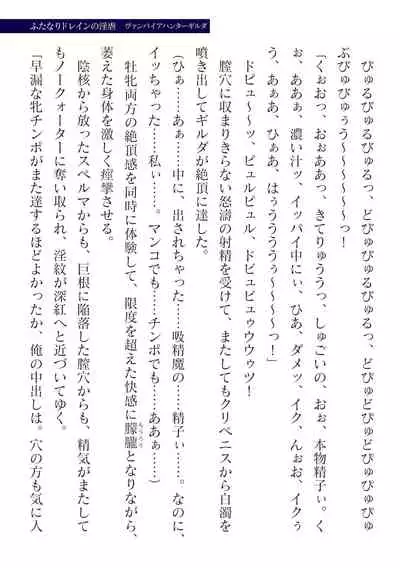 ふたなりドレインの淫虐　ヴァンパイアハンターギルダ
びゅるびゅるびゅるびゅるっ、どびゅびゅるびゅるっ、どびゅどびゅどびゅびゅびゅ
ぶびゅびゅぅう～～～～～～っ！
「くぉおっ、おぉああっ、きてりゅううっ、しゅごいの、おぉ、本物精子ぃ。く
ぉ、ああぁ、濃い汁ッ、イッパイ中にぃ、ひあ、ダメッ、イク、んぉお、イクぅ
う、あぁあ、ひぁあ、はぅううううぅ～～～～～っ！」
ドピュ～～ッ、ピュルピュル、ドビュビュゥウウゥッ！
膣穴に収まりきらない怒濤の射精を受けて、またしてもクリペニスから白濁を
噴き出してギルダが絶頂に達した。
（ひぁ……あぁ……中に、出されちゃった……吸精魔の……精子ぃ……。なのに、
イッちゃった……私ぃ……。マンコでも……チンポでも……ああぁ……）
牡牝両方の絶頂感を同時に体験して、限度を超えた快感に朦朧となりながら、
萎えた身体を激しく痙攣させる。
陰核から放ったスペルマからも、巨根に陥落した膣穴からも、精気がまたして
もノークォーターに奪い取られ、淫紋が深紅へと近づいてゆく。
「早漏な牝チンポがまた達するほどよかったか、俺の中出しは。穴の方も気に入